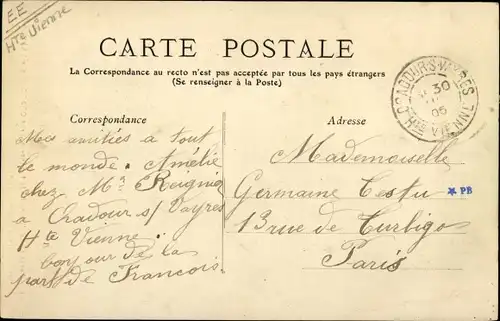 EE
Hte Vienne
CARTE POSTALE
La Correspondance au recto n'est pas acceptée par tous les pays étrangers
(Se renseigner à la Poste)
Correspondance
Mes amitiés a tout
le monde. Amélie
chez Mr Reignier
a Oradour s/ Vayres
Hte Vienne.
bonjour de la
part de Francois.
Adresse
Mademoiselle
Germaine Testu
13 rue de Turbigo
Paris
ORADOUR-S-VAYRES
30
05
HTE VIENNE
* PB